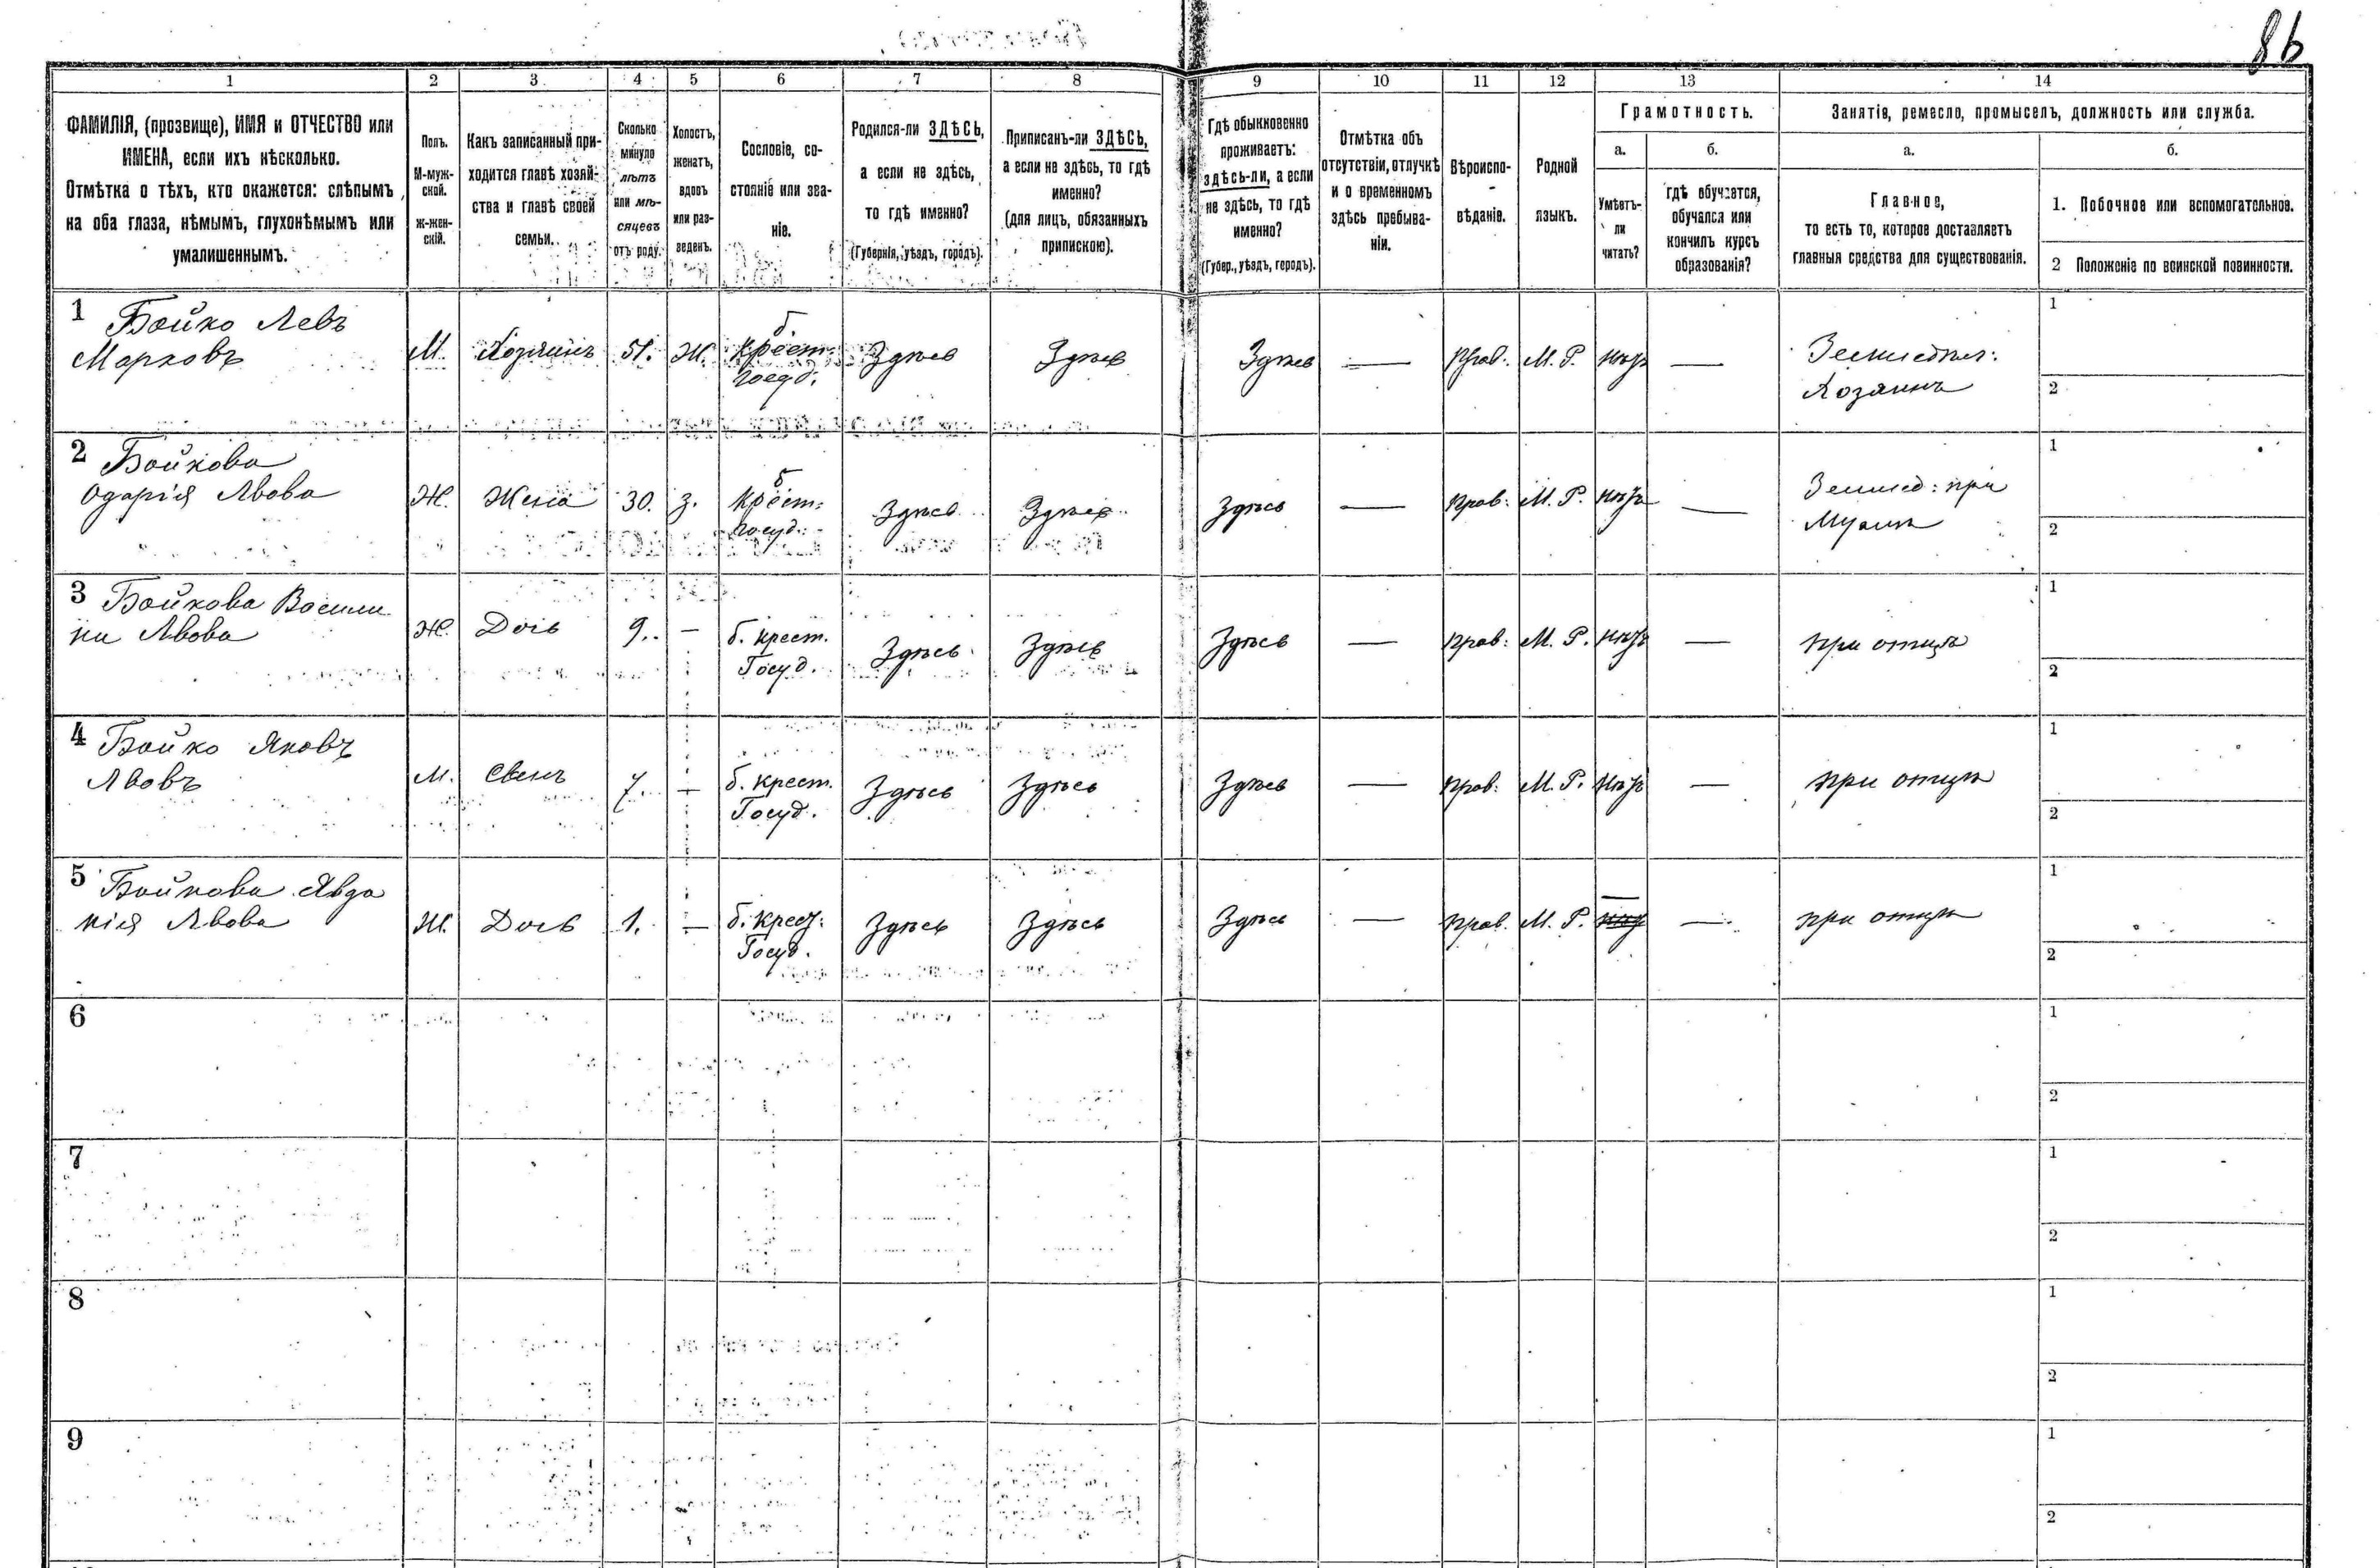 86
1 2 3 4 5 6 7 8 9 10 11 12 13 14
ФАМИЛІЯ, (прозвище), ИМЯ и ОТЧЕСТВО или
ИМЕНА, если ихъ нѣсколько.
Отмѣтка о тѣхъ, кто окажется: слѣпымъ
на оба глаза, нѣмымъ, глухонѣмымъ или
умалишеннымъ.
Полъ.
М-муж-
ской.
Ж-жен-
скій.
Какъ записанный при-
ходится главѣ хозяй-
ства и главѣ своей
семьи.
Сколько
минуло
лѣтъ
или мѣ-
сяцевъ
отъ роду.
Холостъ,
женатъ,
вдовъ
или раз-
веденъ.
Сословіе, со-
стояніе или зва-
ніе.
Родился-ли ЗДѢСЬ,
а если не здѣсь,
то гдѣ именно?
(Губернія, уѣздъ, городъ).
Приписанъ-ли ЗДѢСЬ,
а если не здѣсь, то гдѣ
именно?
(для лицъ, обязанныхъ
припискою).
Гдѣ обыкновенно
проживаетъ:
здѣсь-ли, а если
не здѣсь, то гдѣ
именно?
(Губер., уѣздъ, городъ).
Отмѣтка объ
отсутствіи, отлучкѣ
и о временномъ
здѣсь пребыва-
ніи.
Вѣроиспо-
вѣданіе.
Родной
языкъ.
Грамотность.
а.
Умѣетъ-
ли
читать?
б.
гдѣ обучается,
обучался или
кончилъ курсъ
образованія?
Занятія, ремесло, промыселъ, должность или служба.
а.
Главное,
то есть то, которое доставляетъ
главныя средства для существованія.
б.
1. Побочное или вспомогательное.
2 Положеніе по воинской повинности.
1 Бойко Левъ
Марковъ
М. Хозяинъ 51. Ж. б. крест. госуд. Здѣсь Здѣсь Здѣсь — Прав. М. Р. нѣтъ — Землѣдѣл:
Хозяинъ
1
2
2 Бойкова
Одарія Львова
Ж. Жена 30. З. б крест: госуд. Здѣсь Здѣсь Здѣсь — прав: М. Р. нѣтъ — Землед: при
Мужѣ
1
2
3 Бойкова Васили
на Львова
Ж. Дочь 9. — б. крест. Госуд. Здѣсь Здѣсь Здѣсь — прав: М. Р. нѣтъ — при отцѣ
1
2
4 Бойко Яковъ
Львовъ
М. Сынъ 7. — б. крест. Госуд. Здѣсь Здѣсь Здѣсь — прав: М. Р. нѣтъ — при отцѣ
1
2
5 Бойкова Явдо
кія Львова
Ж. Дочь 1. — б. крест. Госуд. Здѣсь Здѣсь Здѣсь — прав. М. Р. — — при отцѣ
1
2
6
1
2
7
1
2
8
1
2
9
1
2